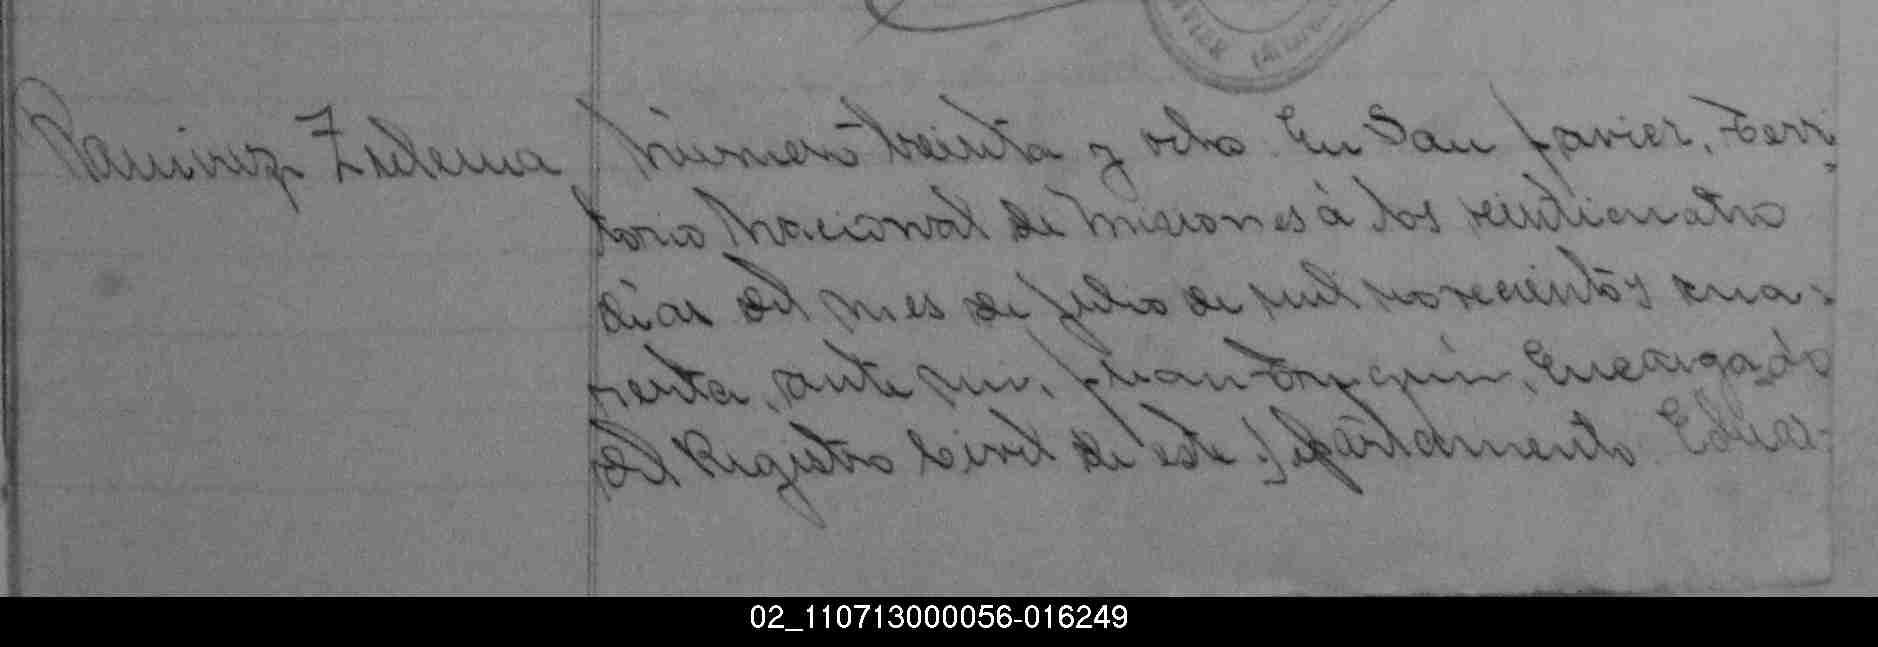 Ramirez Zulema
Número treinta y ocho. En San Javier, Terri-
torio Nacional de Misiones à los veinticuatro
dias del mes de Julio de mil novecientos cua-
renta, ante mi, Juan Encargado
del Registro Civil de este Departamento
02_110713000056-016249